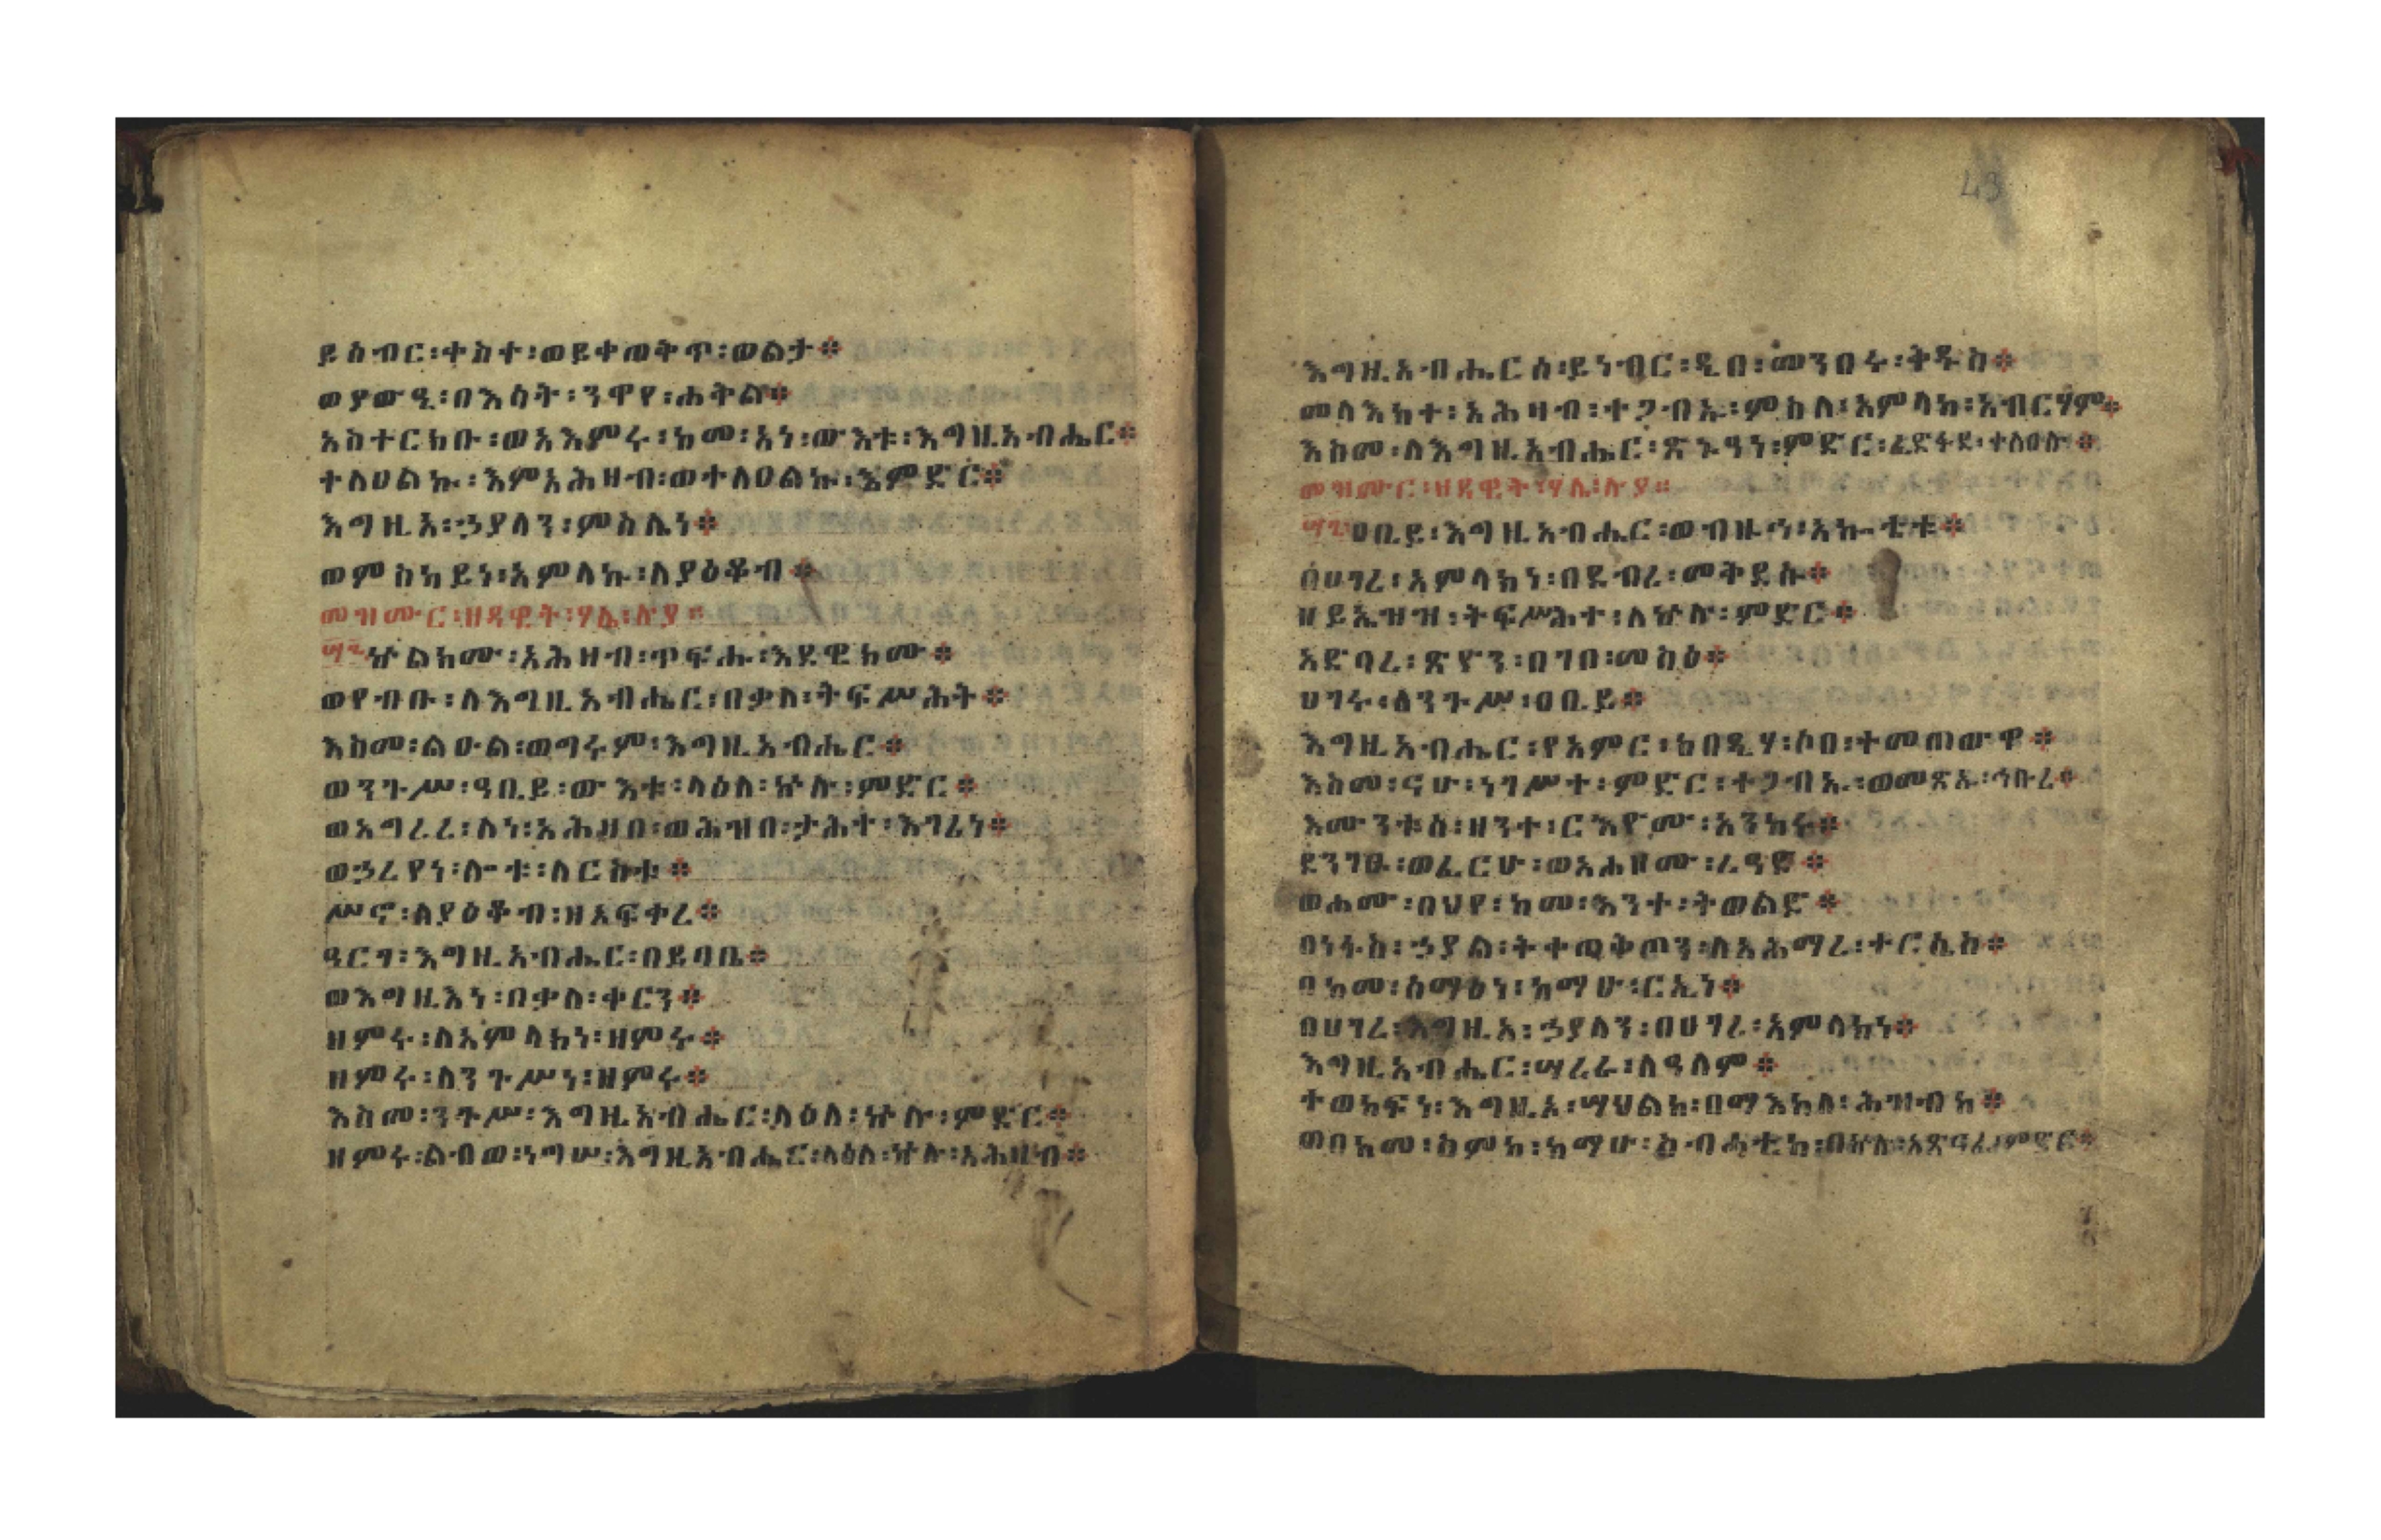 ይሰብር፡ቀስተ፡ወይቀጠቅጥ፡ወልታ።
ወያውዒ፡በእሳት፡ንዋየ፡ሐቅል።
አስተርክቡ፡ወአእምሩ፡ከመ፡አነ፡ውእቱ፡እግዚአብሔር።
ተለዐልኩ፡እምአሕዛብ፡ወተለዐልኩ፡እምድር።
እግዚአ፡ኃያላን፡ምስሌነ።
ወምስካይነ፡አምላኩ፡ለያዕቆብ።
መዝሙር፡ዘዳዊት፡ሃሌ፡ሉያ።
ኵልክሙ፡አሕዛብ፡ጥፍሑ፡እደዊክሙ።
ወየብቡ፡ለእግዚአብሔር፡በቃለ፡ትፍሥሕት።
እስመ፡ልዑል፡ወግሩም፡እግዚአብሔር።
ወንጉሥ፡ዓቢይ፡ውእቱ፡ላዕለ፡ኵሉ፡ምድር።
ወአግረረ፡ለነ፡አሕዛበ፡ወሕዝበ፡ታሕተ፡እገሪነ።
ወኃረየነ፡ሎቱ፡ለርስቱ።
ሥኖ፡ለያዕቆብ፡ዘአፍቀረ።
ዓርገ፡እግዚአብሔር፡በይባቤ።
ወእግዚእነ፡በቃለ፡ቀርን።
ዘምሩ፡ለአምላክነ፡ዘምሩ።
ዘምሩ፡ለንጉሥነ፡ዘምሩ።
እስመ፡ንጉሥ፡እግዚአብሔር፡ላዕለ፡ኵሉ፡ምድር።
ዘምሩ፡ልብወ፡ነግሠ፡እግዚአብሔር፡ላዕለ፡ኵሉ፡አሕዛብ።
43
እግዚአብሔርሰ፡ይነብር፡ዲበ፡መንበሩ፡ቅዱስ።
መላእክተ፡አሕዛብ፡ተጋብኡ፡ምስለ፡አምላከ፡አብርሃም።
እስመ፡ለእግዚአብሔር፡ጽኑዓነ፡ምድር፡ፈድፋደ፡ተለዐሉ።
መዝሙር፡ዘዳዊት፡ሃሌ፡ሉያ።
ዐቢይ፡እግዚአብሔር፡ወብዙኅ፡አኰቴቱ።
በሀገረ፡አምላክነ፡በደብረ፡መቅደሱ።
ዘይኤዝዝ፡ትፍሥሕተ፡ለኵሉ፡ምድር።
አድባረ፡ጽዮን፡በገበ፡መስዕ።
ሀገሩ፡ለንጉሥ፡ዐቢይ።
እግዚአብሔር፡የአምር፡ክበዲሃ፡ሶበ፡ተመጠውዋ።
እስመ፡ናሁ፡ነገሥተ፡ምድር፡ተጋብኡ፡ወመጽኡ፡ኅቡረ።
እሙንቱሰ፡ዘንተ፡ርእዮሙ፡አንከሩ።
ደንገፁ፡ወፈርሁ፡ወአሐዞሙ፡ረዓድ።
ወሐሙ፡በህየ፡ከመ፡እንተ፡ትወልድ።
በነፋስ፡ኃያል፡ትቀጠቅጦን፡ለአሕማረ፡ተርሴስ።
በከመ፡ሰማዕነ፡ከማሁ፡ርኢነ።
በሀገረ፡እግዚአ፡ኃያላን፡በሀገረ፡አምላክነ።
እግዚአብሔር፡ሣረራ፡ለዓለም።
ተወከፍነ፡እግዚአ፡ሣህልከ፡በማእከለ፡ሕዝብከ።
ወበከመ፡ስምከ፡ከማሁ፡ስብሓቲከ፡በኵሉ፡አጽናፈ፡ምድር።